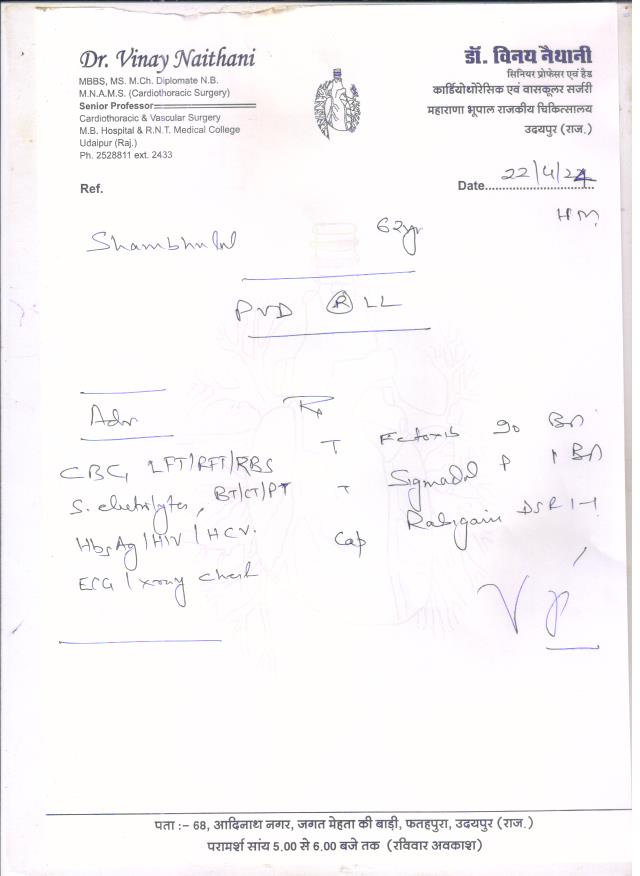 Dr. Vinay Naithani
MBBS, MS. M.Ch. Diplomate N.B.
M.N.A.M.S. (Cardiothoracic Surgery)
Senior Professor
Cardiothoracic & Vascular Surgery
M.B. Hospital & R.N.T. Medical College
Udaipur (Raj.)
Ph. 2528811 ext. 2433
डॉ. विनय नैथानी
सिनियर प्रोफेसर एवं हैड
कार्डियोथोरेसिक एवं वासकूलर सर्जरी
महाराणा भूपाल राजकीय चिकित्सालय
उदयपुर (राज.)
Ref.
Date 22/4/24
Shambhulal 62yr
PVD R LL
Adv
CBC, LFT/RFT/RBS
S. electrolytes, BT/CT/PT
HbsAg/HIV/HCV.
ECG / xray chest
Rx
T 90
T Sigmadol P
Cap DSR 1-1
पता :– 68, आदिनाथ नगर, जगत मेहता की बाड़ी, फतहपुरा, उदयपुर (राज.)
परामर्श सांय 5.00 से 6.00 बजे तक (रविवार अवकाश)